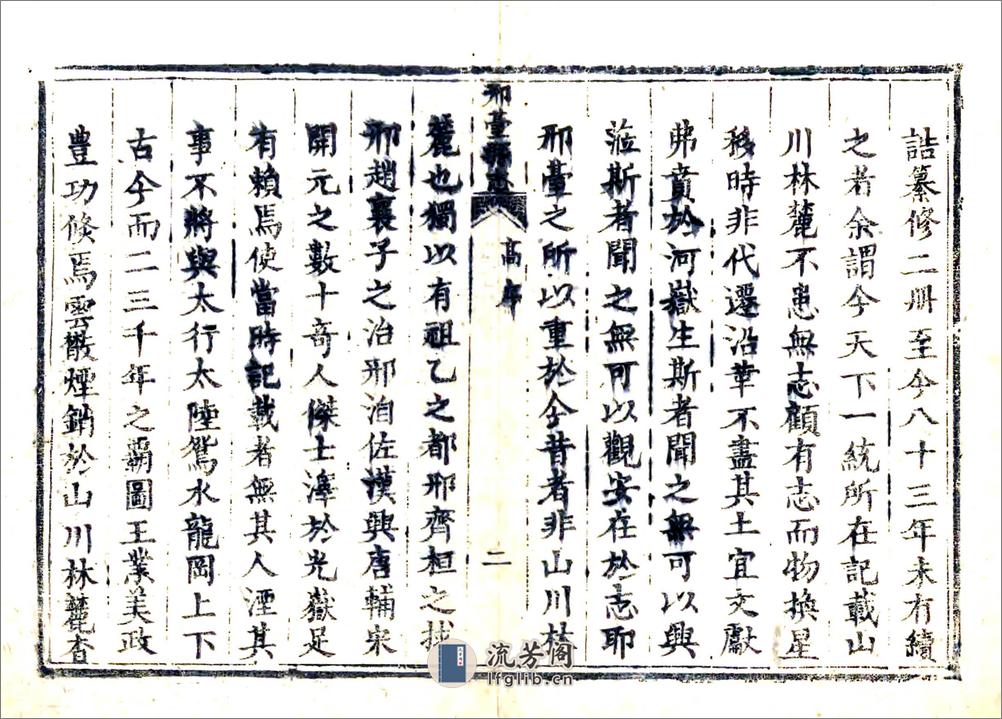 誥纂修二册至今八十三年未有續
之者余謂今天下一統所在記載山
川林麓不患無志顧有志而物換星
移時非代遷沿革不盡其土宜文獻
弗賁於河嶽生斯者聞之無可以興
蒞斯者聞之無可以觀安在於志耶
邢臺之所以重於今昔者非山川林
邢臺縣志
高序
二
麓也獨以有祖乙之都邢齊桓之救
邢趙襄子之治邢洎佐漢興唐輔宋
開元之數十奇人傑士澤於光嶽足
有賴焉使當時記載者無其人湮其
事不將與太行太陸鴛水龍岡上下
古今而二三千年之覇圖王業美政
豊功倐焉雲散煙銷於山川林麓杳
流芳阁
lfglib.cn